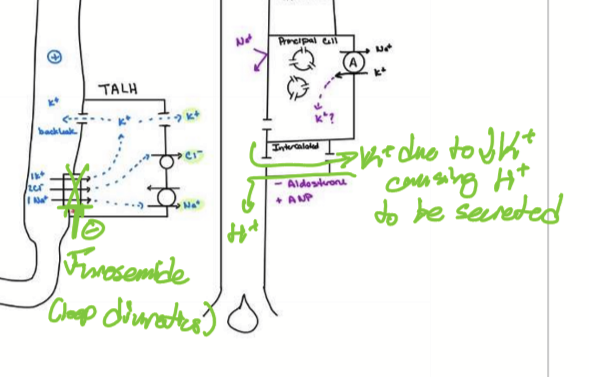 TALH
K+
K+
K+
backleak
K+
Cl-
1K+
2Cl-
1Na+
Na+
Furosemide
(loop diuretics)
Principal Cell
Na+
Na+
A
K+
K+?
Intercalated
- Aldosterone
+ ANP
H+
K+ due to ↓K+
causing H+
to be secreted